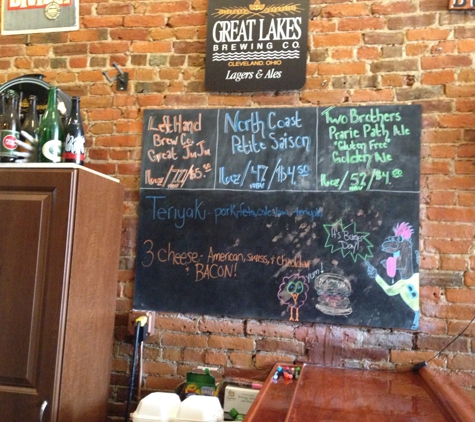 GREAT LAKES
BREWING CO.
CLEVELAND, OHIO
Lagers & Ales
Left Hand
Brew Co.
Great JuJu
North Coast
Petite Saison
16oz / 4.7 / $4.50
Two Brothers
Prarie Path Ale
"Gluten Free"
Golden Ale
16oz / 5.2 / $4.50
Teriyaki - pork,
3 cheese - American, swiss, + cheddar
+ BACON!
It's Burger
Day!
yum!